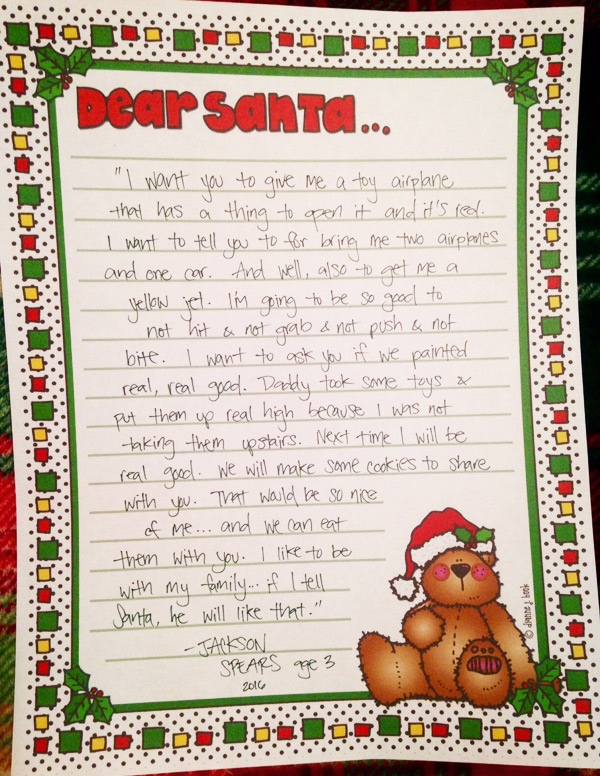 Dear Santa...
"I want you to give me a toy airplane
that has a thing to open it and it's red.
I want to tell you to for bring me two airplanes
and one car. And well, also to get me a
yellow jet. I'm going to be so good to
not hit & not grab & not push & not
bite. I want to ask you if we painted
real, real good. Daddy took some toys &
put them up real high because I was not
taking them upstairs. Next time I will be
real good. We will make some cookies to share
with you. That would be so nice
of me... and we can eat
them with you. I like to be
with my family... if I tell
Santa, he will like that."
-JACKSON
SPEARS age 3
2016
© dianne j hook